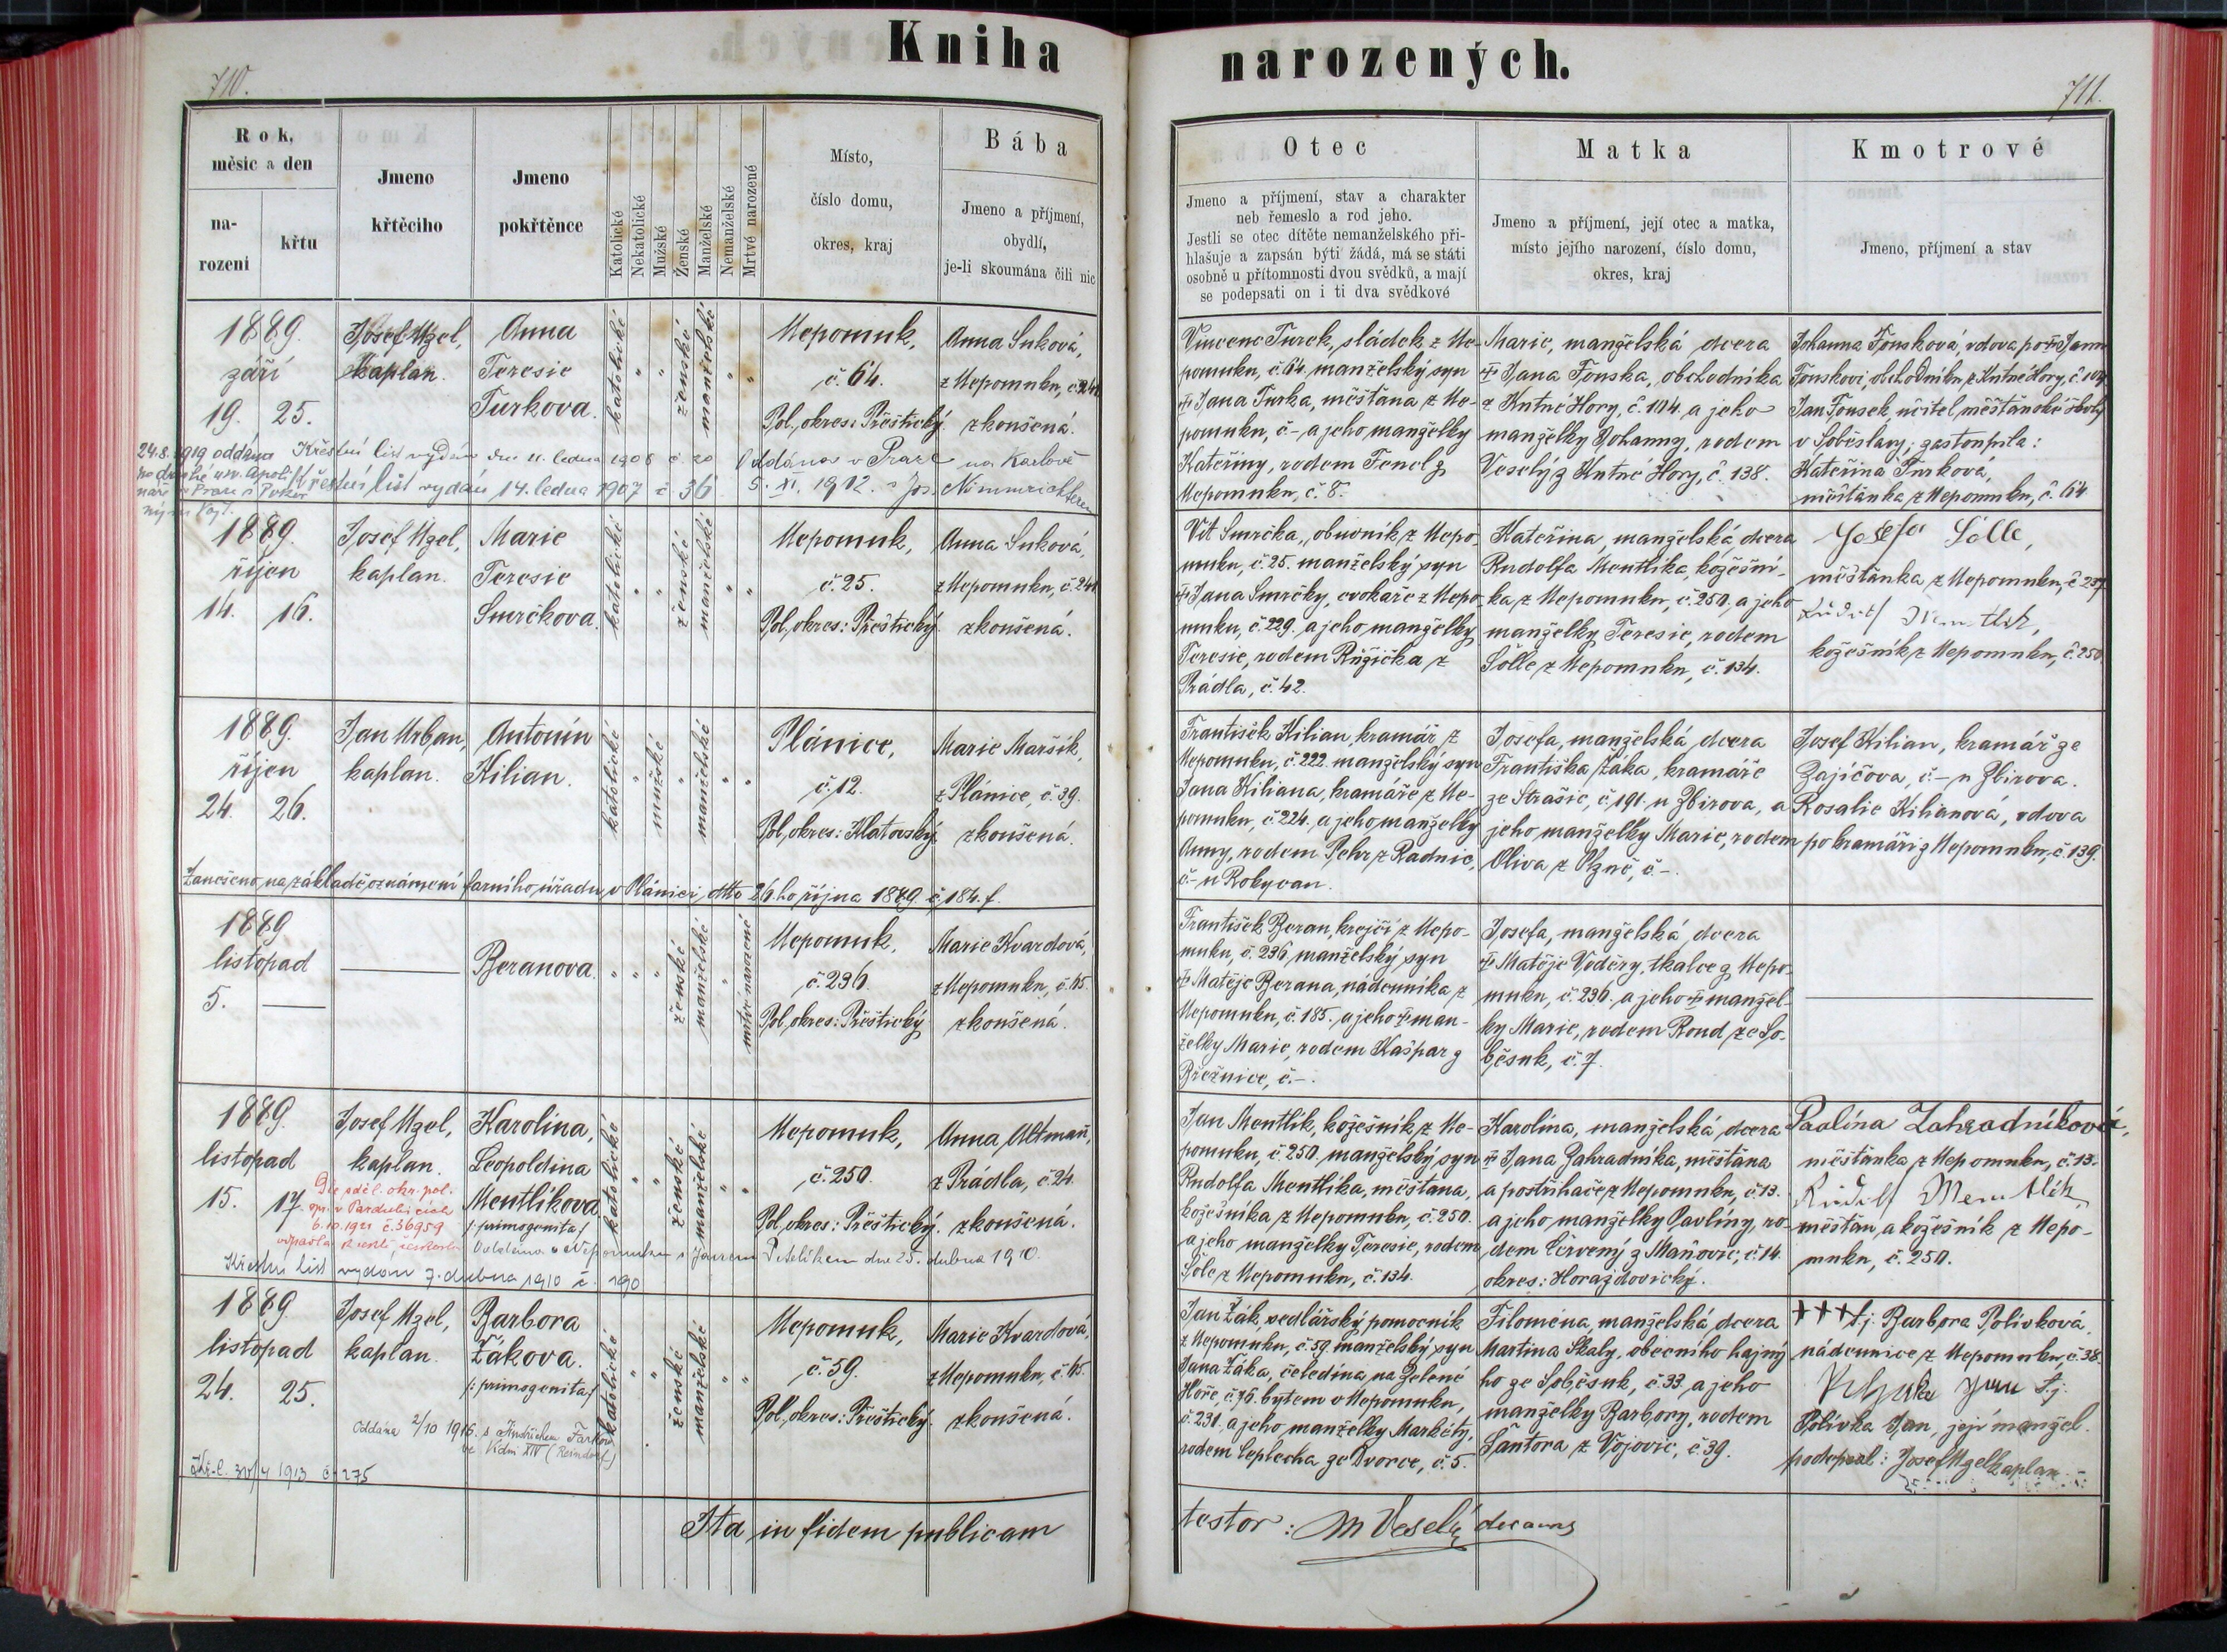 Kniha
narozených.
710.
711.
Rok,
měsíc a den
na-
rozeni
křtu
Jmeno
křtěciho
Jmeno
pokřtěnce
Katolické
Nekatolické
Mužské
Ženské
Manželské
Nemanželské
Mrtvé narozené
Místo,
číslo domu,
okres, kraj
Bába
Jmeno a příjmení,
obydlí,
je-li skoumána čili nic
Otec
Jmeno a příjmení, stav a charakter
neb řemeslo a rod jeho.
Jestli se otec dítěte nemanželského při-
hlašuje a zapsán býti žádá, má se státi
osobně u přítomnosti dvou svědků, a mají
se podepsati on i ti dva svědkové
Matka
Jmeno a příjmení, její otec a matka,
místo jejího narození, číslo domu,
okres, kraj
Kmotrové
Jmeno, příjmení a stav
1889.
září
19. 25.
Josef Uzel,
kaplan.
Anna
Teresie
Turkova.
katolické
"
"
ženské
manželské
"
"
Nepomuk,
č. 64.
Pol. okres: Přeštický.
Anna Suková,
z Nepomuku, č. 241.
zkoušená.
Vincenc Turek, sládek z Ne-
pomuku, č. 64. manželský syn
† Jana Turka, měšťana z Ne-
pomuku, č. - a jeho manželky
Kateřiny, rodem Fencl z
Nepomuku, č. 8.
Marie, manželská dcera
† Jana Fouska, obchodníka
z Kutné Hory, č. 104. a jeho
manželky Johanny, rodem
Veselý z Kutné Hory, č. 138.
Johanna Fousková, vdova po † Janu
Fouskovi, obchodníku z Kutné Hory, č. 104.
Jan Fousek, učitel měšťanské školy
v Soběslavy; zastoupila:
Kateřina Turková,
měšťanka z Nepomuku, č. 64
24.8.1919 oddána
Křestní list vydán dne 11. ledna 1906 č 20
Křestní list vydán 14. ledna 1907 č 36
Oddána v Praze na Karlově
5. XI. 1912. s Jos. Nimmrichterem
1889.
říjen
14. 16.
Josef Uzel,
kaplan.
Marie
Teresie
Smrčkova.
katolické
"
"
ženské
manželské
"
"
Nepomuk,
č. 25.
Pol. okres: Přeštický.
Anna Suková,
z Nepomuku, č. 241.
zkoušená.
Vít Smrčka, obuvník z Nepo-
muku, č. 25. manželský syn
† Jana Smrčky, cvokaře z Nepo-
muku, č. 229. a jeho manželky
Teresie, rodem Růžička z
Prádla, č. 42.
Kateřina, manželská dcera
Rudolfa Mentlíka, kožešní-
ka z Nepomuku, č. 250. a jeho
manželky Teresie, rodem
Šölle z Nepomuku, č. 134.
Josefa Sölle,
měšťanka z Nepomuku, č. 237
Rudolf Mentlík,
kožešník z Nepomuku, č. 250.
1889.
říjen
24. 26.
Jan Urban,
kaplan.
Antonín
Kilian.
katolické
"
mužské
"
manželské
"
"
Plánice,
č. 12.
Pol. okres: Klatovský.
Marie Maršík,
z Plánice, č. 39.
zkoušená.
František Kilian, kramář z
Nepomuku, č. 222. manželský syn
Jana Kiliana, kramáře z Ne-
pomuku, č. 224. a jeho manželky
Anny, rodem Pehr z Radnic,
č. - u Rokycan.
Josefa, manželská dcera
Františka Žáka, kramáře
ze Strašic, č. 191. u Zbirova, a
jeho manželky Marie, rodem
Oliva z Plzně, č. -.
Josef Kilian, kramář ze
Zajíčova, č. - u Zbirova.
Rosalie Kilianová, vdova
po kramáři z Nepomuku, č. 139.
Zaneseno na základě oznámení farního úřadu v Plánici, dtto 26.ho října 1889. č. 184. f.
1889
listopad
5.
Beranova.
"
"
"
ženské
manželské
"
mrtvé narozené
Nepomuk,
č. 236.
Pol. okres: Přeštický.
Marie Kvardová,
z Nepomuku, č. 65.
zkoušená.
František Beran, krejčí z Nepo-
muku, č. 236, manželský syn
† Matěje Berana, nádenníka z
Nepomuku, č. 185. a jeho † man-
želky Marie, rodem Kašpar z
Březnice, č. -.
Josefa, manželská dcera
† Matěje Voděry, tkalce z Nepo-
muku, č. 236. a jeho † manžel-
ky Marie, rodem Rond ze So-
běsuk, č. 7.
1889.
listopad
15. 17.
Josef Uzel,
kaplan.
Karolina,
Leopoldina
Mentlíkova.
/: primogenita /
katolické
"
"
ženské
manželské
"
"
Nepomuk,
č. 250.
Pol. okres: Přeštický.
Anna Altmañ,
z Prádla, č. 24.
zkoušená.
Jan Mentlík, kožešník z Ne-
pomuku, č. 250. manželský syn
Rudolfa Mentlíka, měšťana,
kožešníka z Nepomuku, č. 250.
a jeho manželky Teresie, rodem
Šöle z Nepomuku, č. 134.
Karolina, manželská dcera
† Jana Zahradníka, měšťana
a postřihače z Nepomuku, č. 13.
a jeho manželky Pavlíny, ro-
dem Červený z Maňovic, č. 14.
okres: Horažďovický.
Paulína Zahradníková,
měšťanka z Nepomuku, č. 13.
Rudolf Mentlík,
měšťan a kožešník z Nepo-
muku, č. 250.
Dle sděl. okr. pol.
spr. v Pardubicích
6.10.1921 č. 36959
Oddána v Nepomuku s Janem Petelíkem dne 25. dubna 1910.
Křestní list vydán 7. dubna 1910 č. 190
1889.
listopad
24. 25.
Josef Uzel,
kaplan.
Barbora
Žákova.
/: primogenita /
katolické
"
"
ženské
manželské
"
"
Nepomuk,
č. 59.
Pol. okres: Přeštický.
Marie Kvardová,
z Nepomuku, č. 65.
zkoušená.
Jan Žák, sedlářský pomocník
z Nepomuku, č. 59. manželský syn
Jana Žáka, čeledína na Zelené
Hoře, č. 76. bytem v Nepomuku,
č. 231. a jeho manželky Markéty,
rodem Ceplecha ze Dvorce, č. 5.
Filomena, manželská dcera
Martina Skaly, obecního hajný
ho ze Soběsuk, č. 33. a jeho
manželky Barbory, rodem
Šantora z Vojovic, č. 39.
+++ t.j. Barbora Polívková,
nádennice z Nepomuku, č. 38.
Jan t.j.
Polívka Jan, její manžel.
podepsal: Josef Uzel kaplan
Oddána 2/10 1916. s Jindřichem
ve Vídni XIV (Reindorf)
Kř. l. 30/4 1913 č 275
Ita in fidem publicam
testor: M Veselý decanus